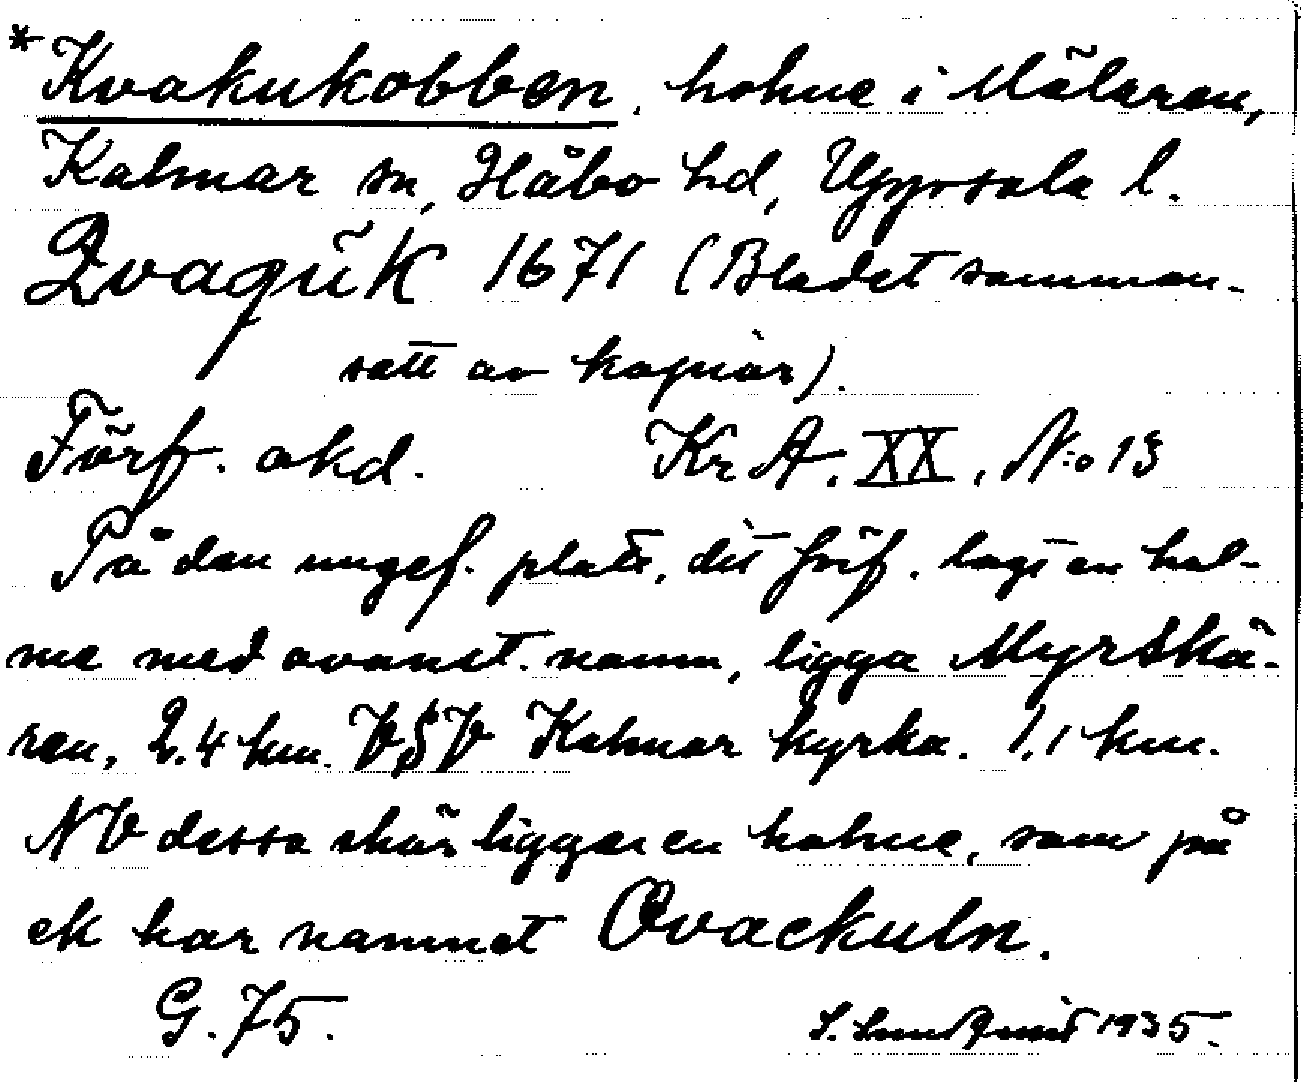 *Kvakukobben, holme i Mälaren,
Kalmar sn, Håbo hd, Uppsala l.
Qvaqük 1671 (Bladet samman-
satt av kopior).
Förf. okd. Kr A. XX, N:o 13
På den ungef. plats, dit förf. lagt en hol-
me med ovanst. namn, ligga Myrskä-
ren, 2.4 km. VSV Kalmar kyrka. 1.1 km.
NV dessa skär ligger en holme, som på
ek har namnet Qvackuln.
G. 75. 1935.